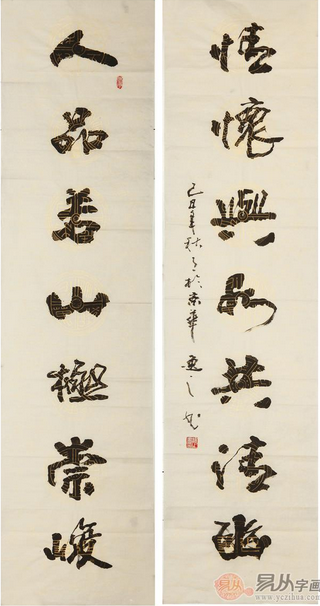 人品若山極崇峻
情懷與水共清幽
己丑年秋月於京華
易从字画
www.yczihua.com